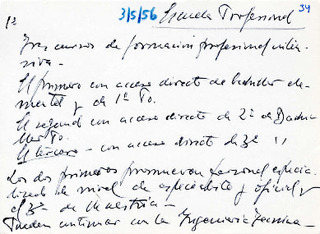 34
1ª 3/5/56 Escuela Profesional
Tres cursos de formación profesional inten-
siva -
El primero con acceso directo de bachiller ele-
mental y de 1ª
El segundo con acceso directo de 2ª de Bachi-
ller
El tercero - con acceso direct de 3ª "
Los dos primeros promueven personal especia-
lizado de nivel de especialista y oficial y
el 3º de Maestría -
Pueden continuar con la Ingeniería Técnica -